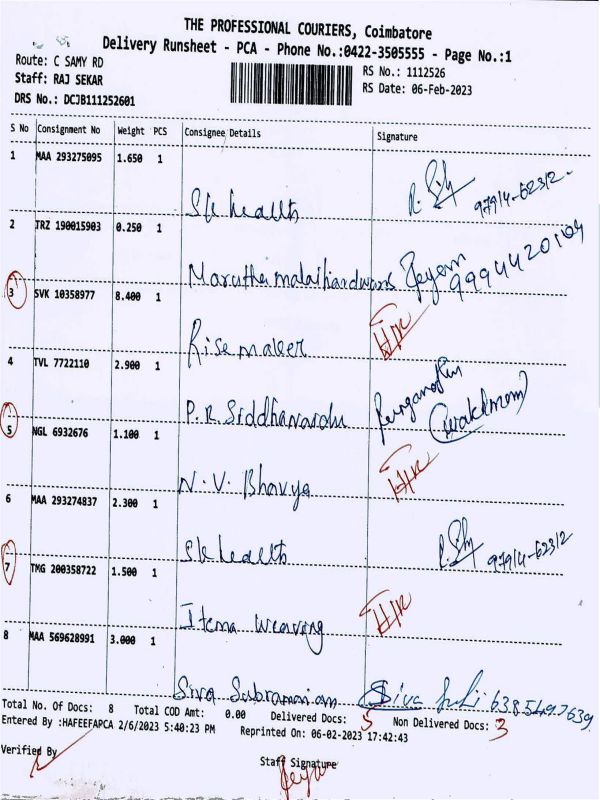 THE PROFESSIONAL COURIERS, Coimbatore
Delivery Runsheet - PCA - Phone No.:0422-3505555 - Page No.:1
Route: C SAMY RD
RS No.: 1112526
Staff: RAJ SEKAR
RS Date: 06-Feb-2023
DRS No.: DCJB111252601
S No Consignment No Weight PCS Consignee Details Signature
1 MAA 293275095 1.650 1
SK health 97914-62312
2 TRZ 190015903 0.250 1
Maruthamalaihardwares Jeyam 9994420109
3 SVK 10358977 8.400 1
Rise maker
4 TVL 7722110 2.900 1
P.R Siddhanardu
5 NGL 6932676 1.100 1
N.V. Bhavya
6 MAA 293274837 2.300 1
SK health 97914-62312
7 TMG 200358722 1.500 1
Itema weaving
8 MAA 569628991 3.000 1
Siva Subramaniam Siva 6385497639
Total No. Of Docs: 8 Total COD Amt: 0.00 Delivered Docs: 5 Non Delivered Docs: 3
Entered By :HAFEEFAPCA 2/6/2023 5:40:23 PM Reprinted On: 06-02-2023 17:42:43
Verified By
Staff Signature